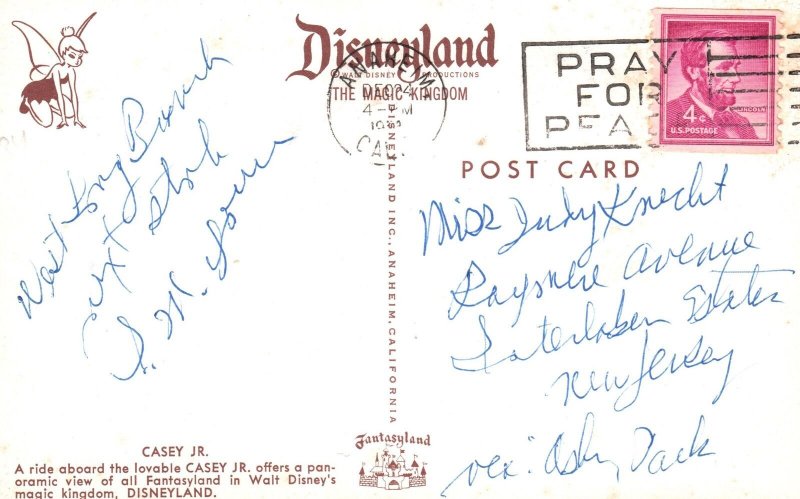 Disneyland
© WALT DISNEY PRODUCTIONS
THE MAGIC KINGDOM
ANAHEIM
DEC 24
4 - PM
CAL
PRAY
FOR
PEA
LINCOLN
4¢
U.S. POSTAGE
POST CARD
Wait
Miss Judy Knecht
Avenue
Estates
New Jersey
Asbury Park
DISNEYLAND INC., ANAHEIM, CALIFORNIA
Fantasyland
CASEY JR.
A ride aboard the lovable CASEY JR. offers a pan-
oramic view of all Fantasyland in Walt Disney's
magic kingdom, DISNEYLAND.